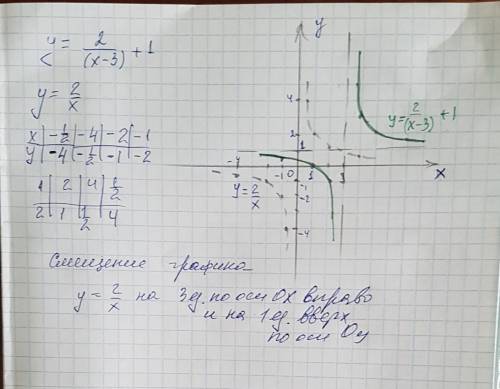 y = 2/(x-3) + 1
<
y = 2/x
x | -1/2 | -4 | -2 | -1
y | -4 | -1/2 | -1 | -2
1 | 2 | 4 | 1/2
2 | 1 | 1/2 | 4
y
4
2
1
-4
-1
0
1
3
x
-1
-2
-4
y = 2/(x-3) + 1
y = 2/x
Смещение графика
y = 2/x на 3 ед. по оси OX вправо
и на 1 ед. вверх
по оси Oy